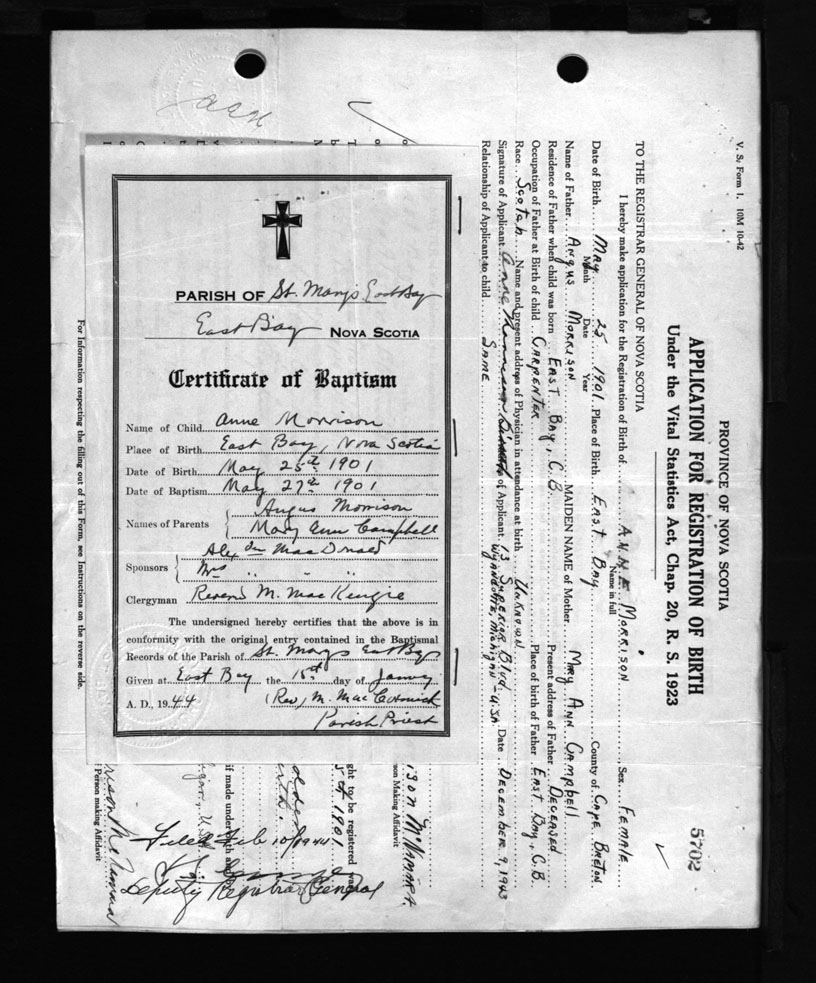 V. S. Form 1. 10M 10-42
PROVINCE OF NOVA SCOTIA
5702
APPLICATION FOR REGISTRATION OF BIRTH
Under the Vital Statistics Act, Chap. 20, R. S. 1923
TO THE REGISTRAR GENERAL OF NOVA SCOTIA
I hereby make application for the Registration of Birth of ANNE MORRISON Sex FEMALE
Name in full
Date of Birth MAY 25 1901 Place of Birth EAST BAY County of CAPE BRETON
Month Date Year
Name of Father ANGUS MORRISON MAIDEN NAME of Mother MARY ANN CAMPBELL
Residence of Father when child was born EAST BAY, C.B. Present address of Father DECEASED
Occupation of Father at Birth of child CARPENTER Place of birth of Father EAST BAY, C.B.
Race Scotch Name and present address of Physician in attendance at birth UNKNOWN
Signature of Applicant Anne of Applicant 13 SUPERIOR Blvd. Date DECEMBER 9, 1943
WYANDOTTE, MICHIGAN - U.S.A.
Relationship of Applicant to child SAME
PARISH OF St. Marys East Bay
East Bay NOVA SCOTIA
Certificate of Baptism
Name of Child Anne Morrison
Place of Birth East Bay, Nova Scotia
Date of Birth May 25th 1901
Date of Baptism May 27th 1901
Names of Parents Angus Morrison
Mary Ann Campbell
Sponsors Alexdr MacDonald
Mrs " - "
Clergyman Reverend M. MacKenzie
The undersigned hereby certifies that the above is in
conformity with the original entry contained in the Baptismal
Records of the Parish of St. Marys East Bay
Given at East Bay the 15th day of January
A. D., 1944 (Rev) M. MacCormick
Parish Priest
ison McNamara
son Making Affidavit
ght to be registered
1901
if made under
Filed Feb 10/1944
Deputy Registrar General
Person making Affidavit
For Information respecting the filling out of this Form, see Instructions on the reverse side.